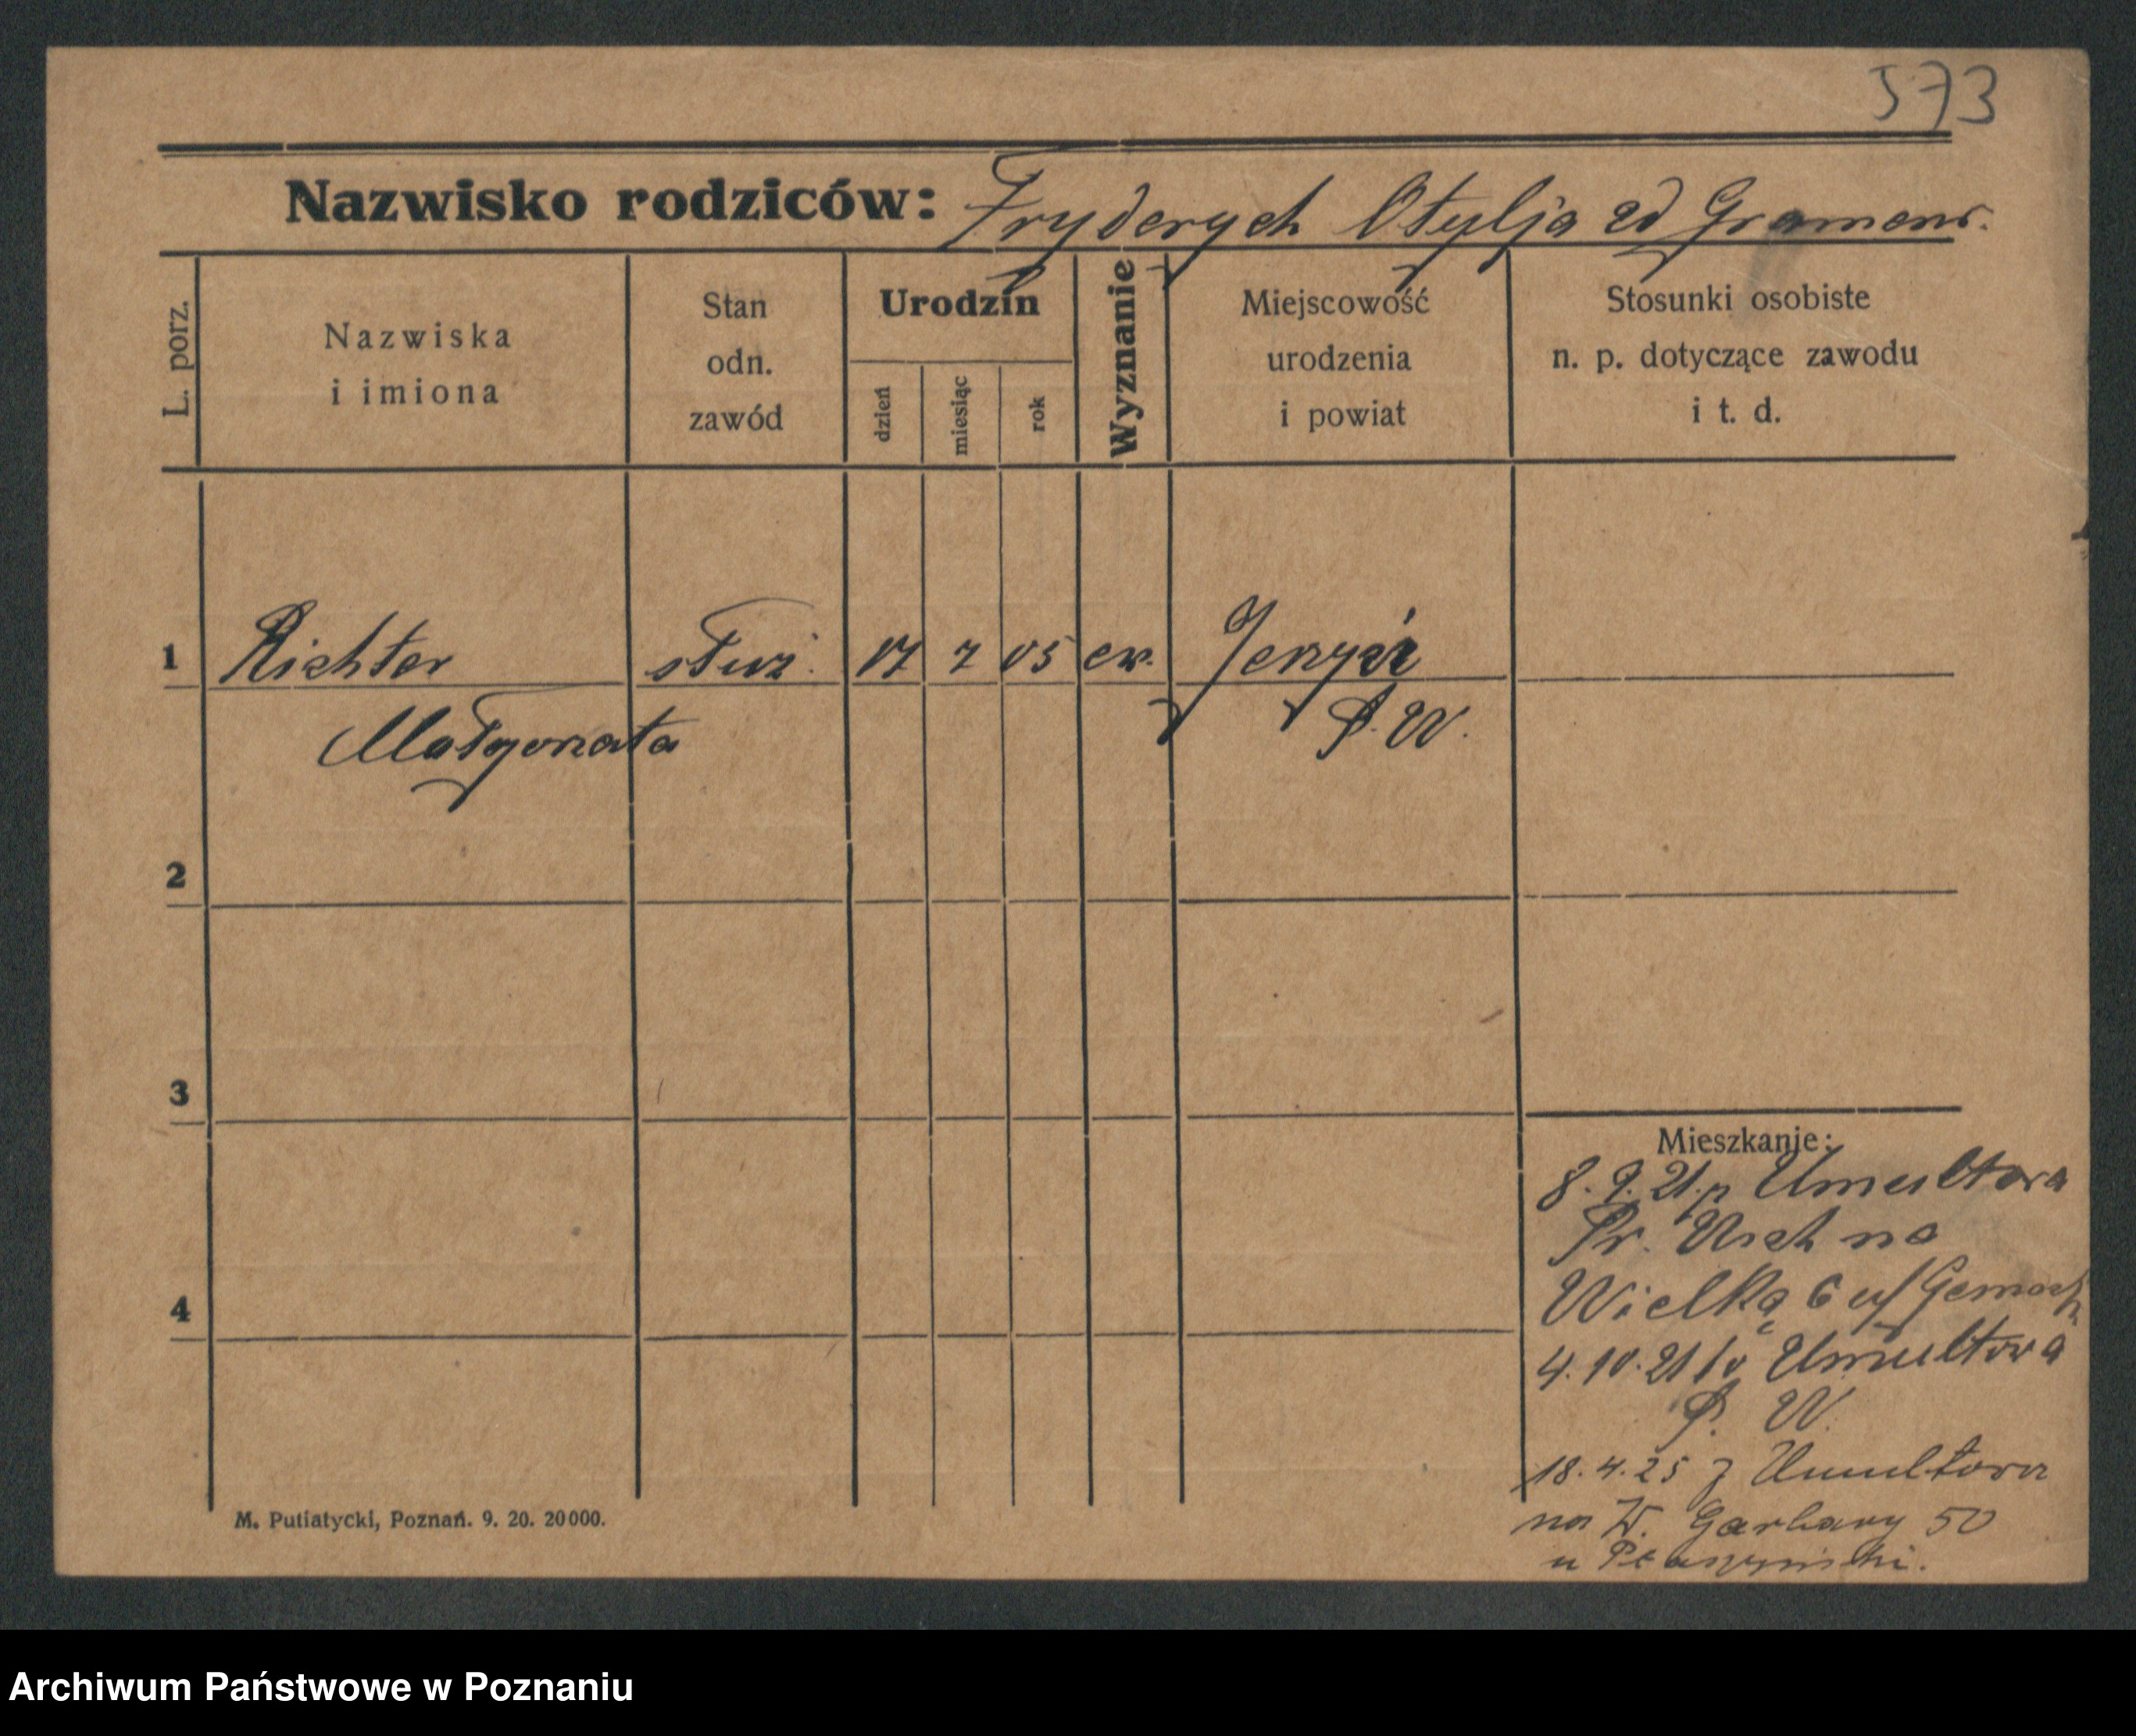 573
Nazwisko rodziców: Fryderych Otylja zd Gramens.
L. porz.
Nazwiska
i imiona
Stan
odn.
zawód
Urodzin
dzień
miesiąc
rok
Wyznanie
Miejscowość
urodzenia
i powiat
Stosunki osobiste
n. p. dotyczące zawodu
i t. d.
1 Richter służ. 17 7 05 ew.
Małgorzata P. W.
2
3
4
Mieszkanie:
8.9.21. Umultowa
Pr. na
Wielką 6 u/
4.10.21 Umultowa
P. W.
18.4.25 z Umultowa
na W. Garbary 50
u
M. Putiatycki, Poznań. 9. 20. 20000.
Archiwum Państwowe w Poznaniu